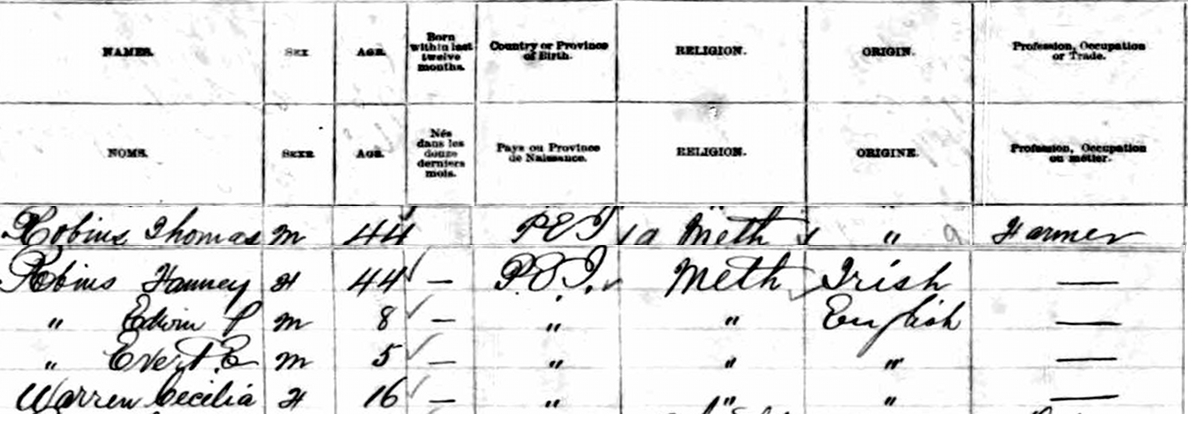 NAMES. SEX AGE. Born within last twelve months. Country or Province of Birth. RELIGION. ORIGIN. Profession, Occupation or Trade.
NOMS. SEXE AGE. Nés dans les douze derniers mois. Pays ou Province de Naissance. RELIGION. ORIGINE. Profession, Occupation ou métier.
Robins Thomas m 44 P.E.I Meth " Farmer
Robins Fanney F 44 — P.E.I. Meth Irish —
" Edwin P m 8 — " " English —
" Evert E m 5 — " " " —
Warren Cecilia F 16 — " " " —